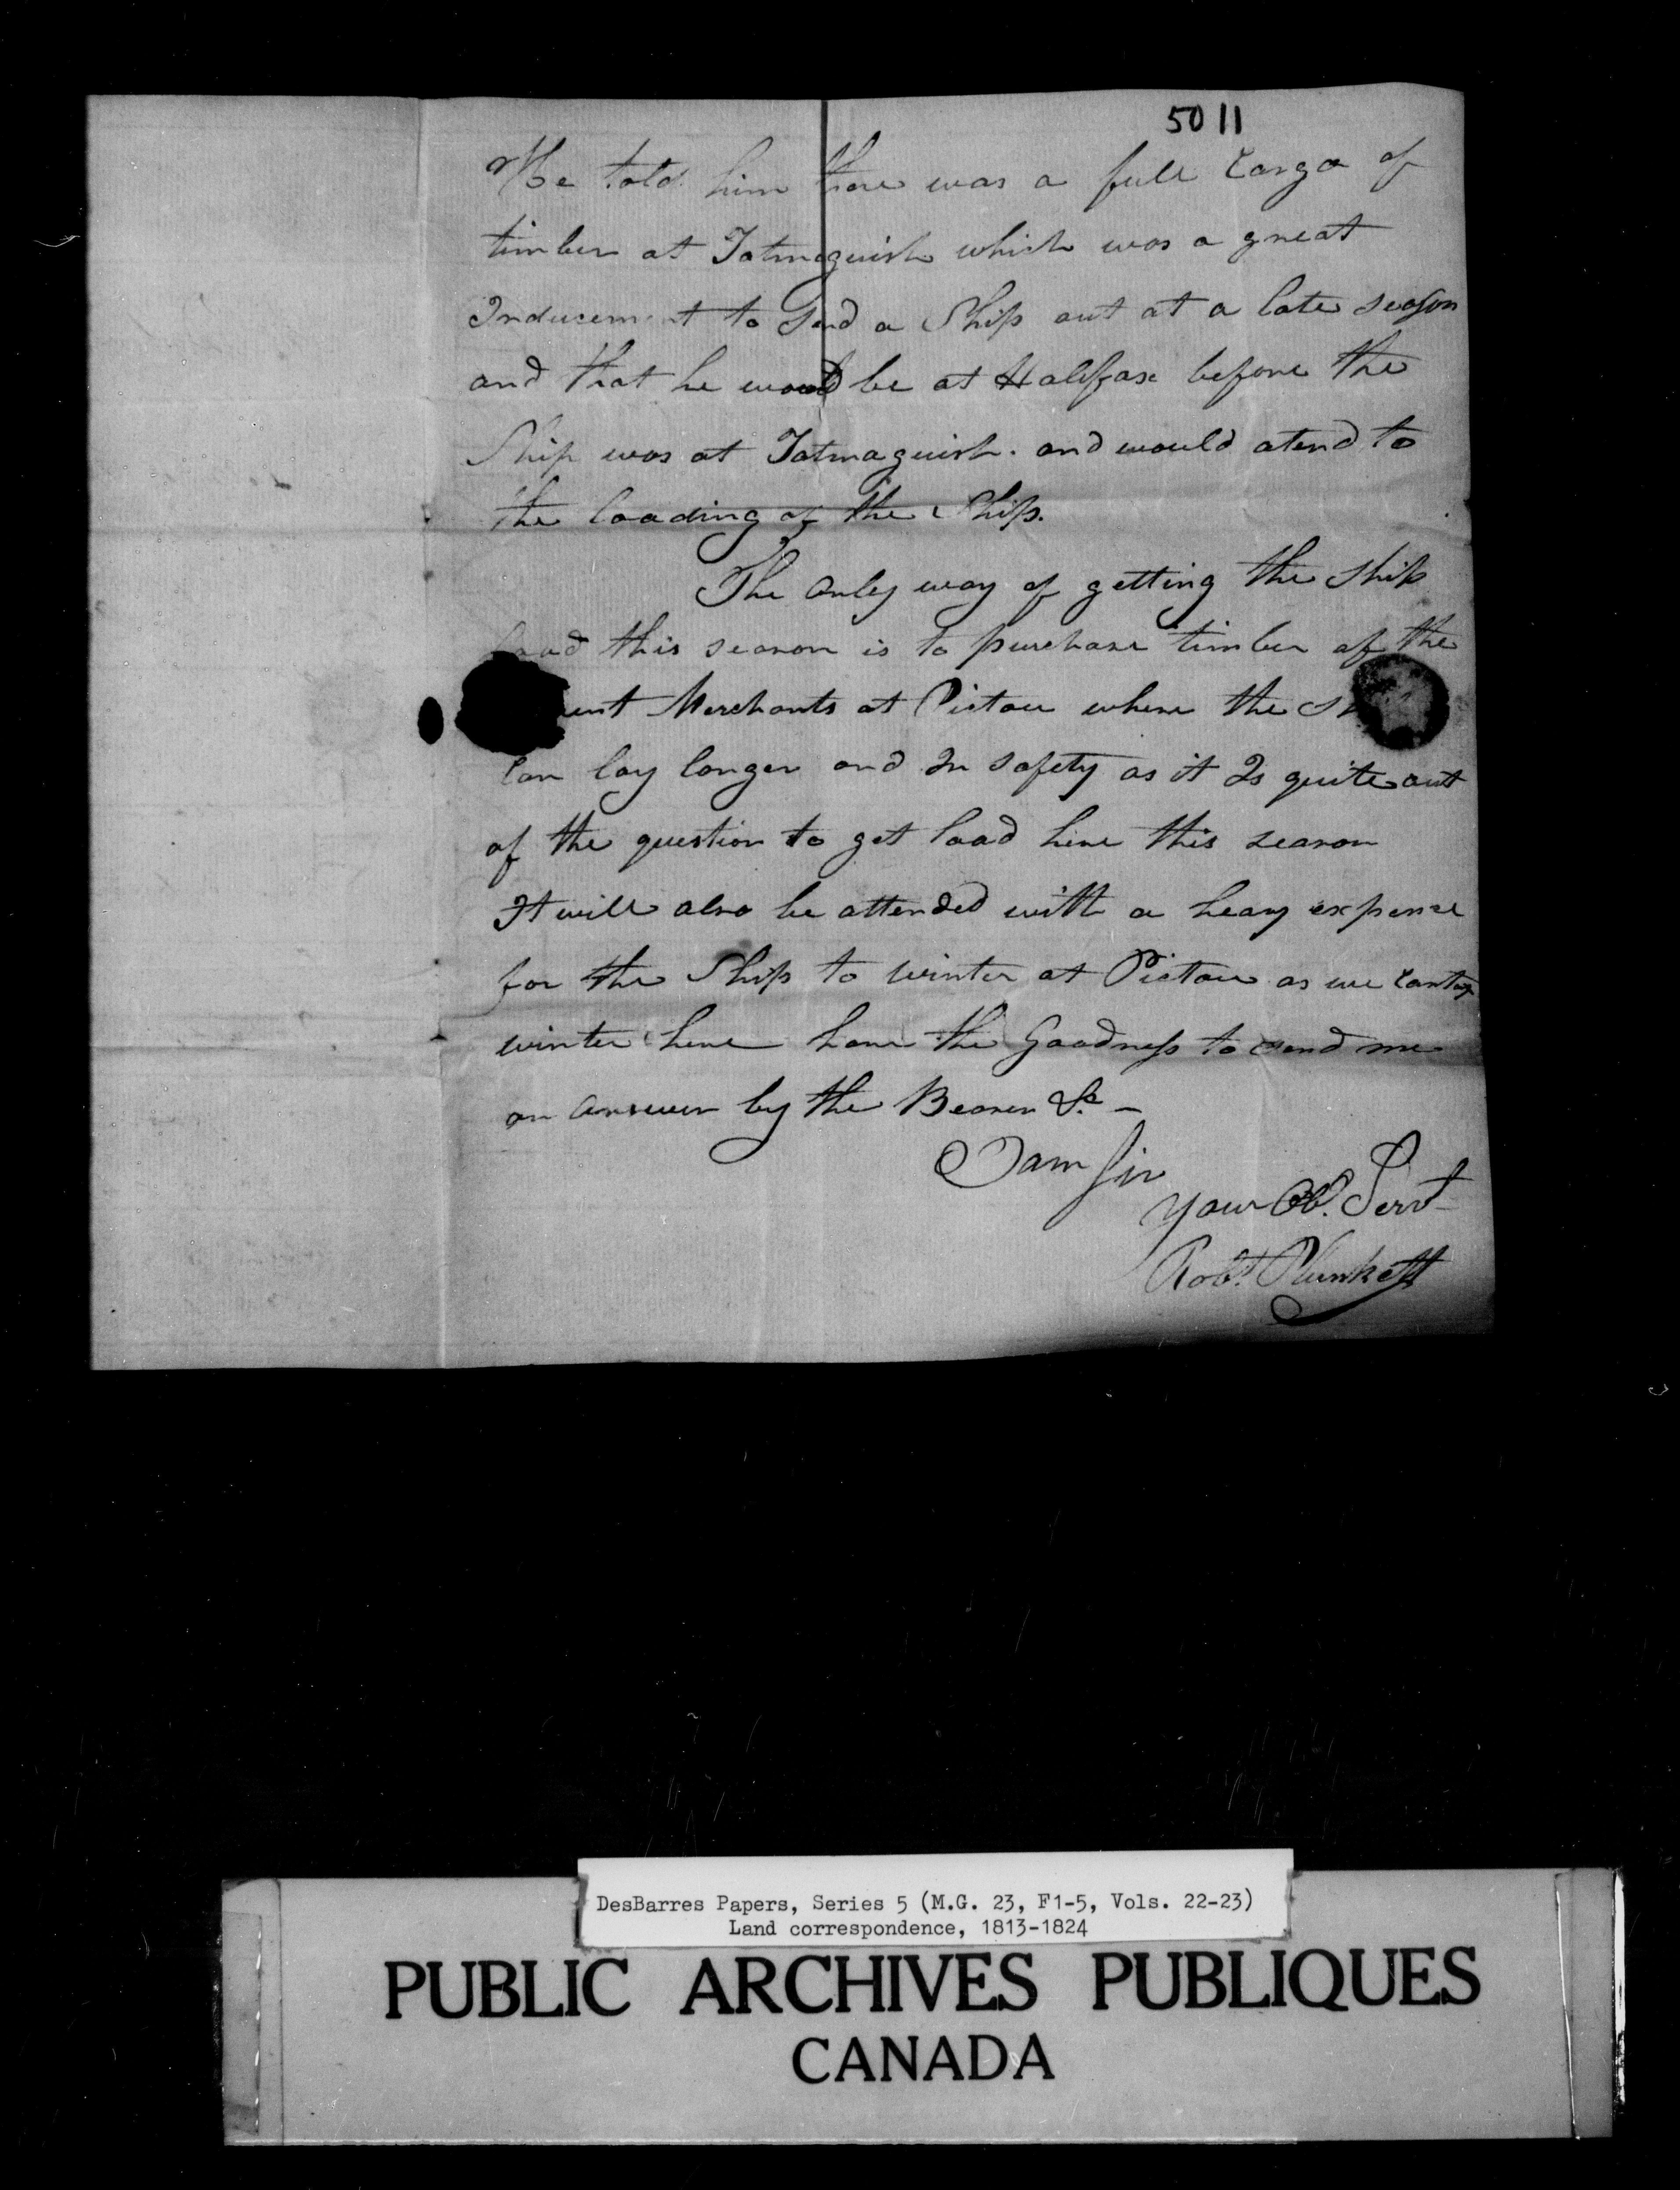 5011
He told him there was a full Cargo of
timber at Tatmaguish which was a great
Inducement to Send a Ship out at a late season
and that he would be at Halifax before the
Ship was at Tatmaguish. and would atend to
the loading of the Ship.
The only way of getting the Ship
load this season is to purchase timber of the
Merchants at Pictou where the
Can lay longer and In safety as it Is quite out
of the question to get load here this season
It will also be attended with a heavy expense
for the Ship to winter at Pictou as we
winter here have the Goodness to send me
an answer by the Bearer &c –
I am Sir
your Ob. Servt
Robt. Plunkett
DesBarres Papers, Series 5 (M.G. 23, F1-5, Vols. 22-23)
Land correspondence, 1813-1824
PUBLIC ARCHIVES PUBLIQUES
CANADA